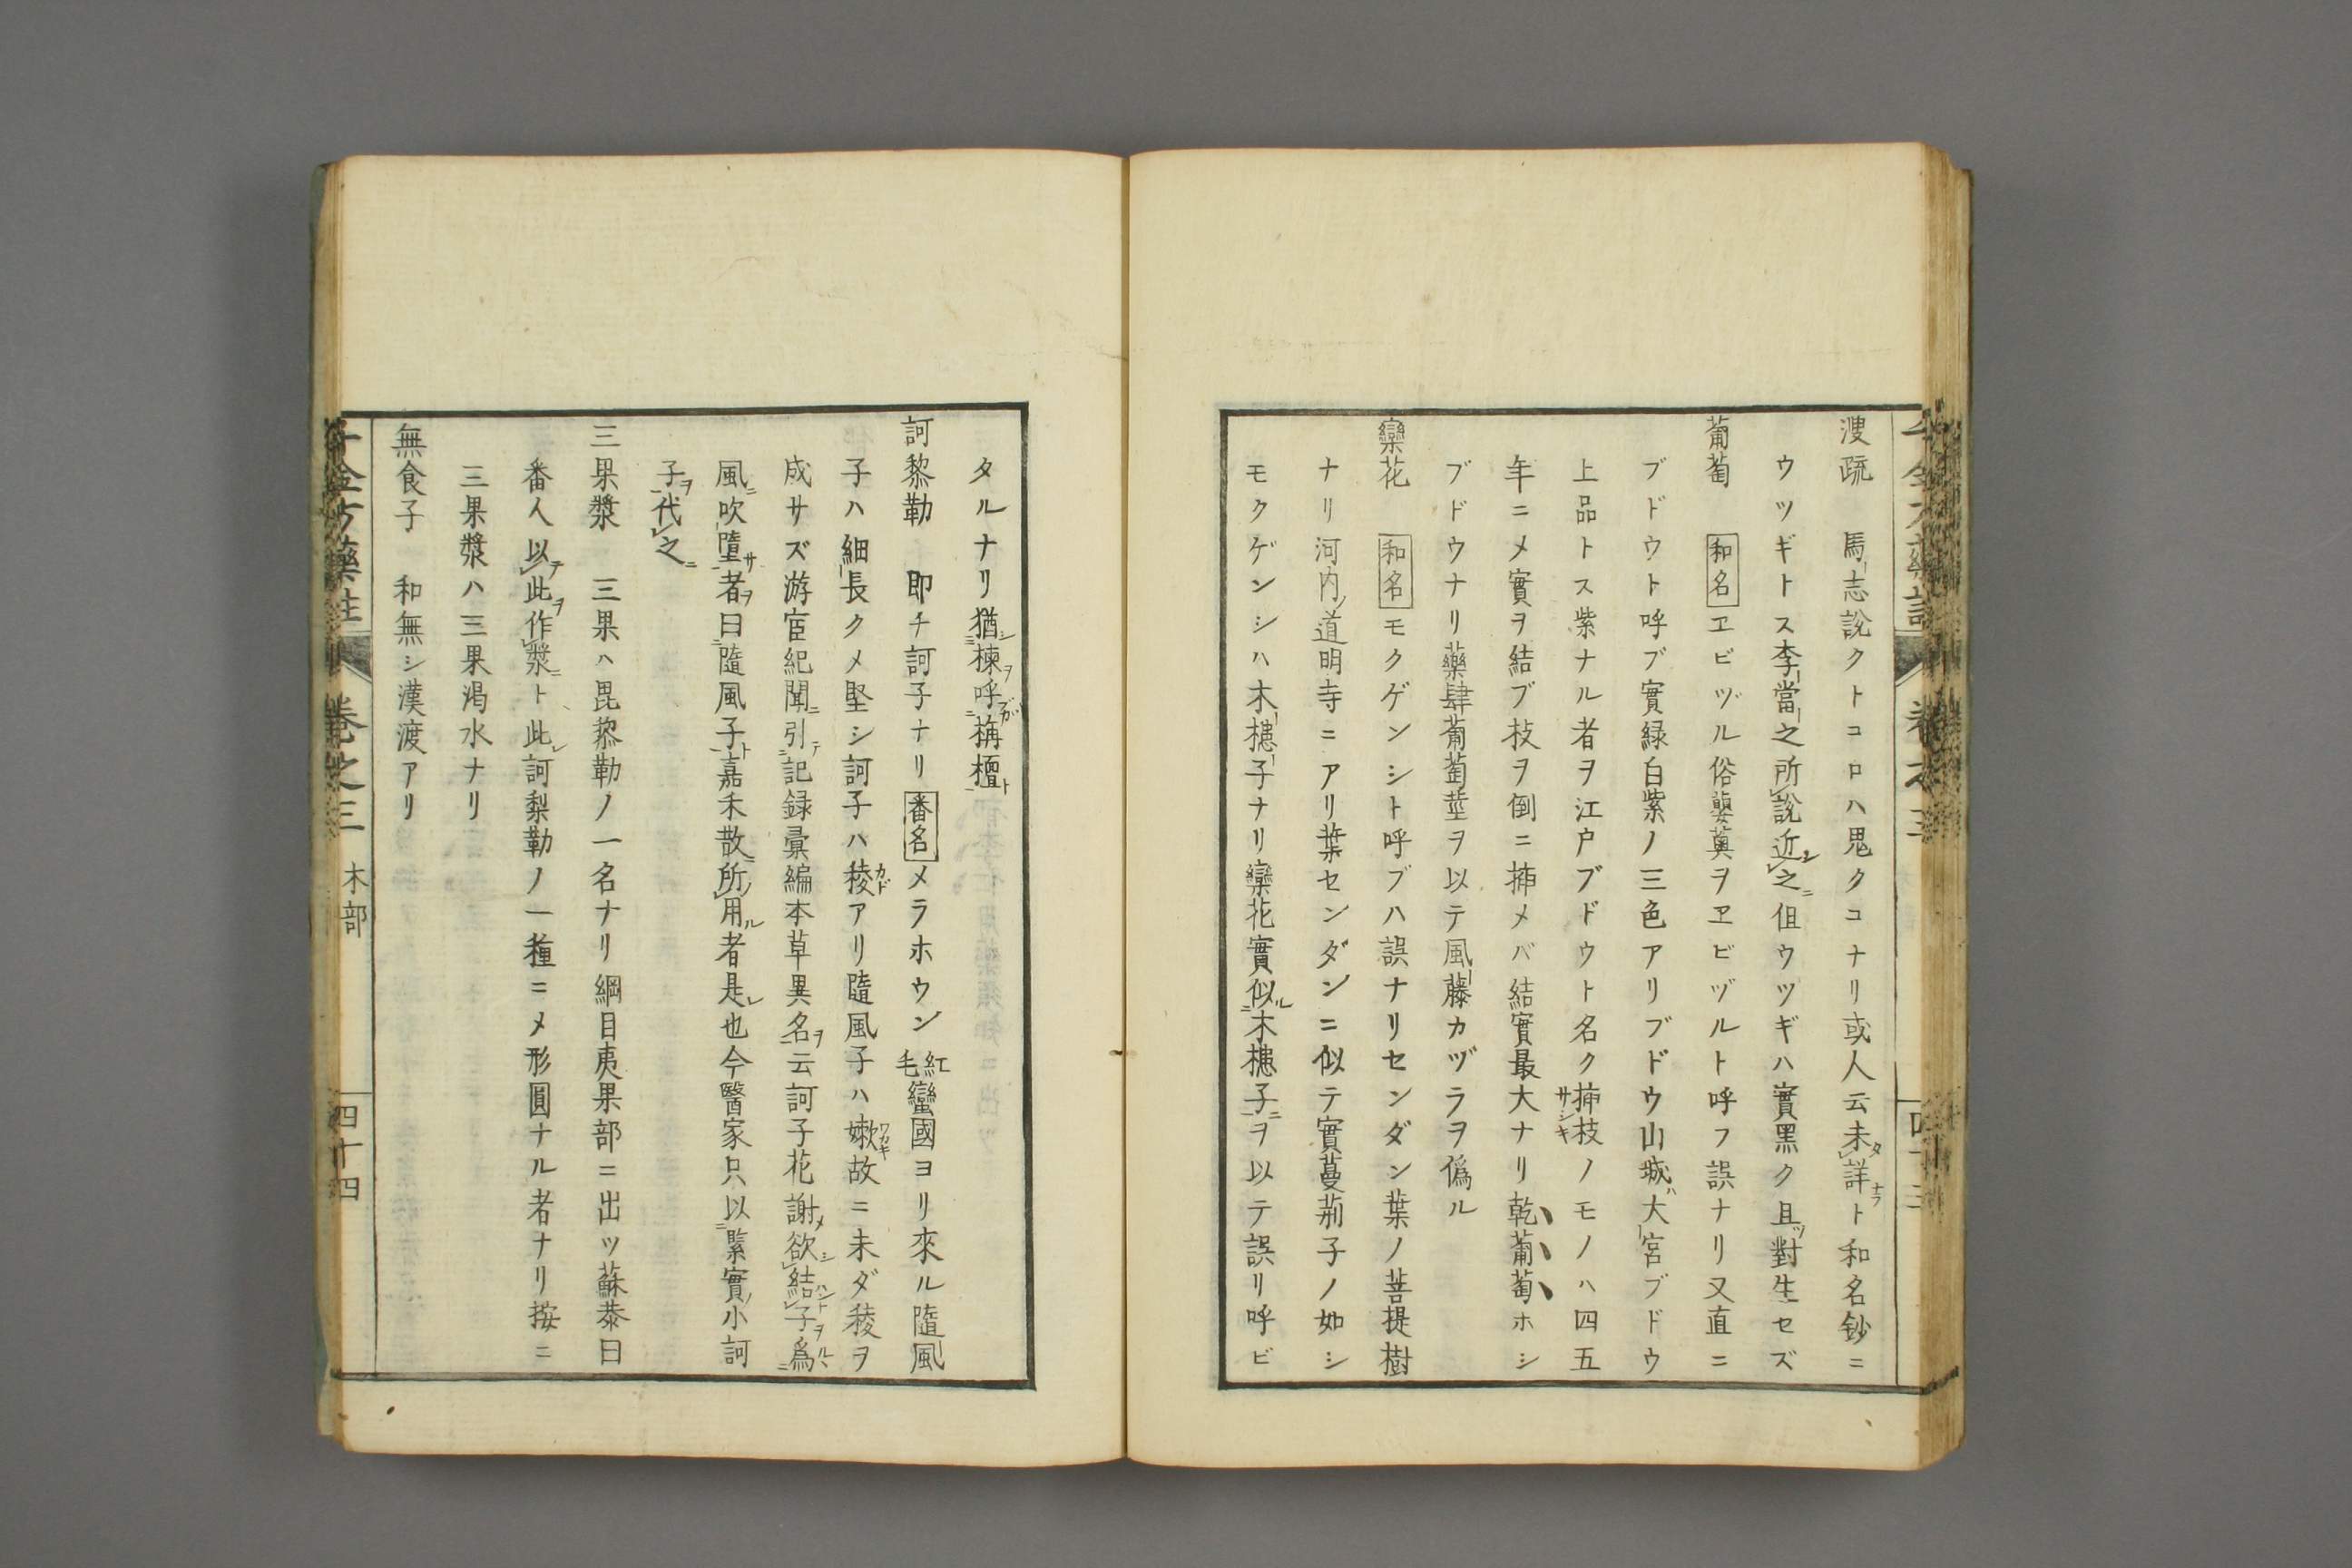 溲疏　馬志說クトコロハ鬼クコナリ或人云未詳ト和名鈔ニ
ウツギトス李當之所說近之伹ウツギハ實黒ク且對生セズ
葡萄　和名ヱビヅル俗蘡薁ヲヱビヅルト呼フ誤ナリ又直ニ
ブドウト呼ブ實緑白紫ノ三色アリブドウ山城大宮ブドウ
上品トス紫ナル者ヲ江戸ブドウト名ク揷枝ノモノハ四五
年ニメ實ヲ結ブ枝ヲ倒ニ揷メバ結實最大ナリ乾葡萄ホシ
ブドウナリ藥肆葡萄莖ヲ以テ風藤カヅラヲ僞ル
欒花　和名モクゲンシト呼ブハ誤ナリセンダン葉ノ菩提樹
ナリ河内道明寺ニアリ葉センダンニ似テ實蔓荊子ノ如シ
モクゲンシハ木槵子ナリ欒花實似木槵子ヲ以テ誤リ呼ビ
千金方藥註　卷之三　四十三
タルナリ猶楝呼栴檀
訶黎勒　即チ訶子ナリ番名メラホウン紅毛蠻國ヨリ來ル隨風
子ハ細長クメ堅シ訶子ハ稜アリ隨風子ハ嫩故ニ未ダ稜ヲ
成サズ游宦紀聞引記録彙編本草異名云訶子花謝欲結子爲
風吹墮者曰隨風子嘉禾散所用者是也今醫家只以緊實小訶
子代之
三果漿　三果ハ毘黎勒ノ一名ナリ綱目夷果部ニ出ツ蘇恭曰
番人以此作漿ト此訶梨勒ノ一種ニメ形圓ナル者ナリ按ニ
三果漿ハ三果渇水ナリ
無食子　和無シ漢渡アリ
千金方藥註　卷之三　木部　四十四